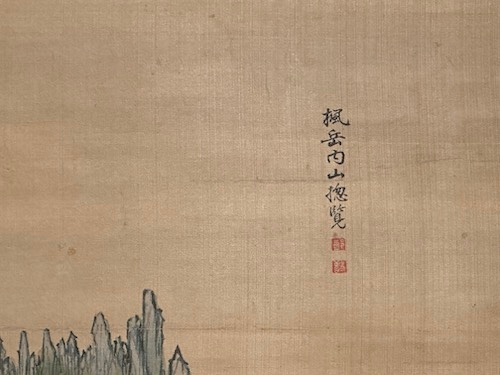 楓岳內山摠覽